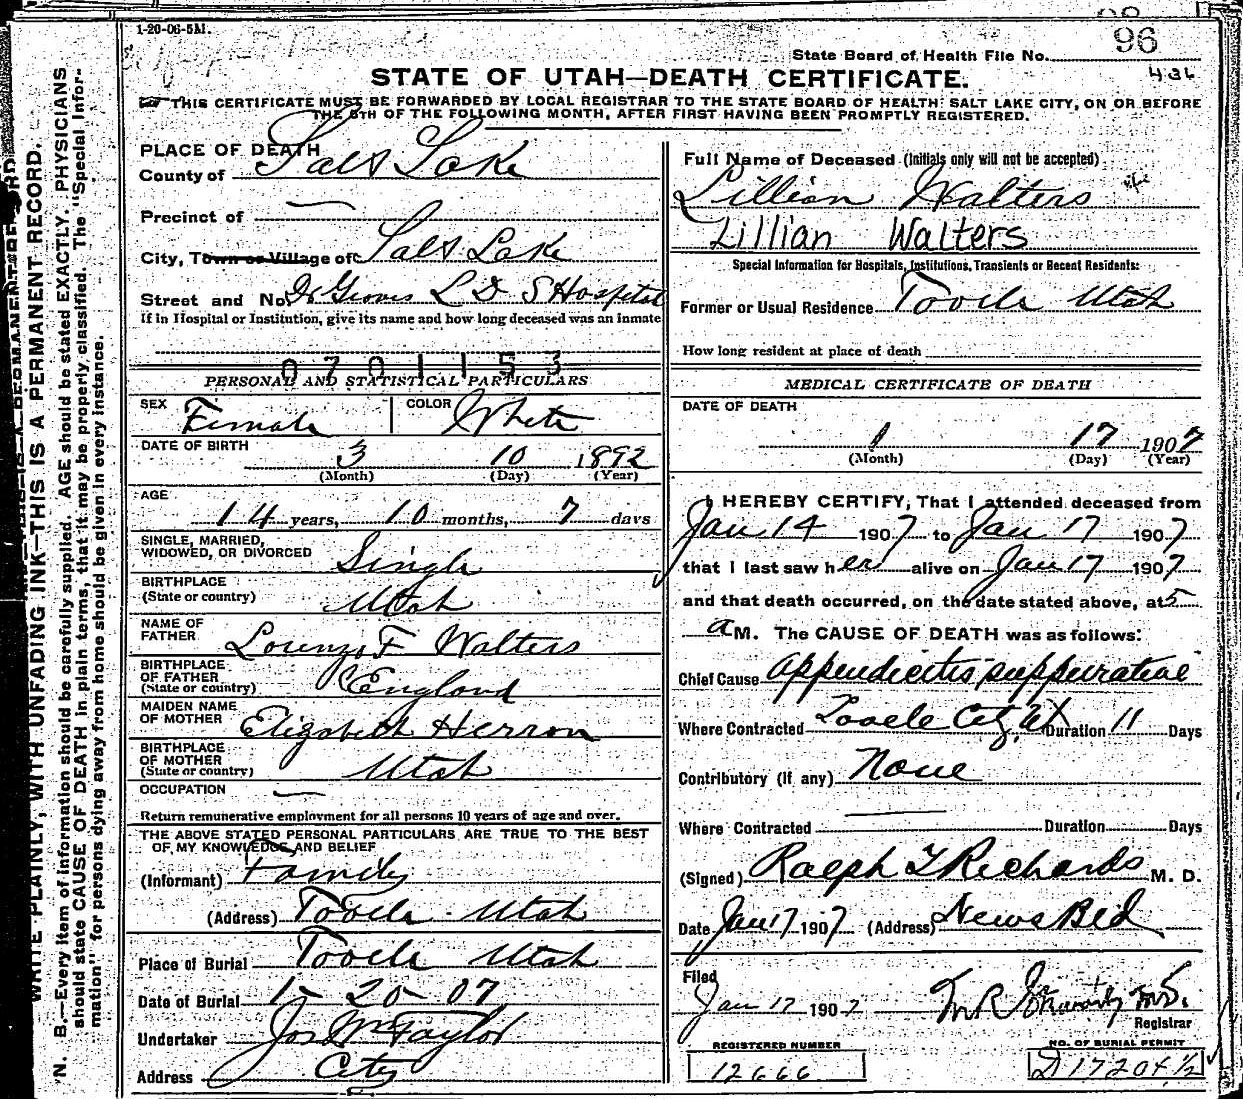 1-20-06-5M.
96
State Board of Health File No.
436
STATE OF UTAH—DEATH CERTIFICATE.
THIS CERTIFICATE MUST BE FORWARDED BY LOCAL REGISTRAR TO THE STATE BOARD OF HEALTH: SALT LAKE CITY, ON OR BEFORE
THE 5TH OF THE FOLLOWING MONTH, AFTER FIRST HAVING BEEN PROMPTLY REGISTERED.
PLACE OF DEATH
County of Salt Lake
Precinct of —
City, Town or Village of Salt Lake
Street and No. Dr Groves L D S Hospital
If in Hospital or Institution, give its name and how long deceased was an inmate
0701153
PERSONAL AND STATISTICAL PARTICULARS
SEX Female COLOR White
DATE OF BIRTH
3 10 1892
(Month) (Day) (Year)
AGE
14 years, 10 months, 7 days
SINGLE, MARRIED,
WIDOWED, OR DIVORCED Single
BIRTHPLACE
(State or country) Utah
NAME OF
FATHER Lorenzo F Walters
BIRTHPLACE
OF FATHER
(State or country) England
MAIDEN NAME
OF MOTHER Elizabeth Herron
BIRTHPLACE
OF MOTHER
(State or country) Utah
OCCUPATION —
Return remunerative employment for all persons 10 years of age and over.
THE ABOVE STATED PERSONAL PARTICULARS ARE TRUE TO THE BEST
OF MY KNOWLEDGE AND BELIEF
(Informant) Family
(Address) Tooele Utah
Place of Burial Tooele Utah
Date of Burial 1- 20- 07
Undertaker Jos Wm Taylor
Address City
Full Name of Deceased (Initials only will not be accepted)
Lillian Walters
Lillian Walters
Special Information for Hospitals, Institutions, Transients or Recent Residents:
Former or Usual Residence Tooele Utah
How long resident at place of death
MEDICAL CERTIFICATE OF DEATH
DATE OF DEATH
1 17 1907
(Month) (Day) (Year)
I HEREBY CERTIFY, That I attended deceased from
Jan 14 1907 to Jan 17 1907
that I last saw her alive on Jan 17 1907
and that death occurred, on the date stated above, at 5
a M. The CAUSE OF DEATH was as follows:
Chief Cause appendicitis suppurative
Where Contracted Tooele City, Ut Duration 11 Days
Contributory (if any) None
Where Contracted — Duration Days
(Signed) Ralph T Richards M. D.
Date Jan 17 1907 (Address) News Bld
Filed
Jan 17 1907
Registrar
REGISTERED NUMBER
12666
NO. OF BURIAL PERMIT
D 17204 1/2
WRITE PLAINLY, WITH UNFADING INK—THIS IS A PERMANENT RECORD.
N. B.—Every item of information should be carefully supplied. AGE should be stated EXACTLY. PHYSICIANS
should state CAUSE OF DEATH in plain terms, that it may be properly classified. The "Special Infor-
mation" for persons dying away from home should be given in every instance.